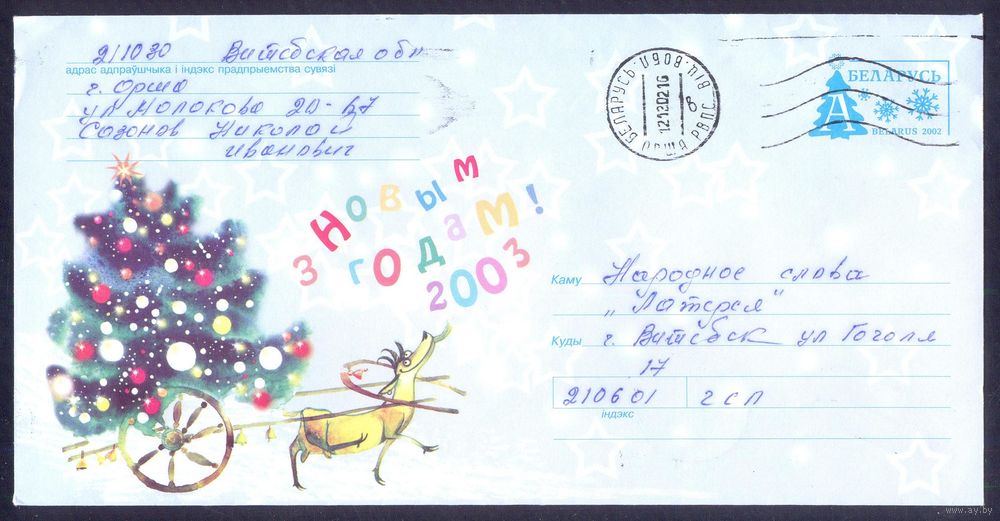 211030 Витебская обл
адрас адпраўшчыка і індэкс прадпрыемства сувязі
г. Орша
ул Молокова 20-67
Созонов Николай
Иванович
БЕЛАРУСЬ
ОРША РВПС
121302 16
в
БЕЛАРУСЬ
А
BELARUS 2002
З НОВЫМ
ГОДАМ!
2003
Каму Народное слова
„Лотерея"
Куды г. Витебск ул Гоголя
17
210601 гсп
індэкс
www.ay.by